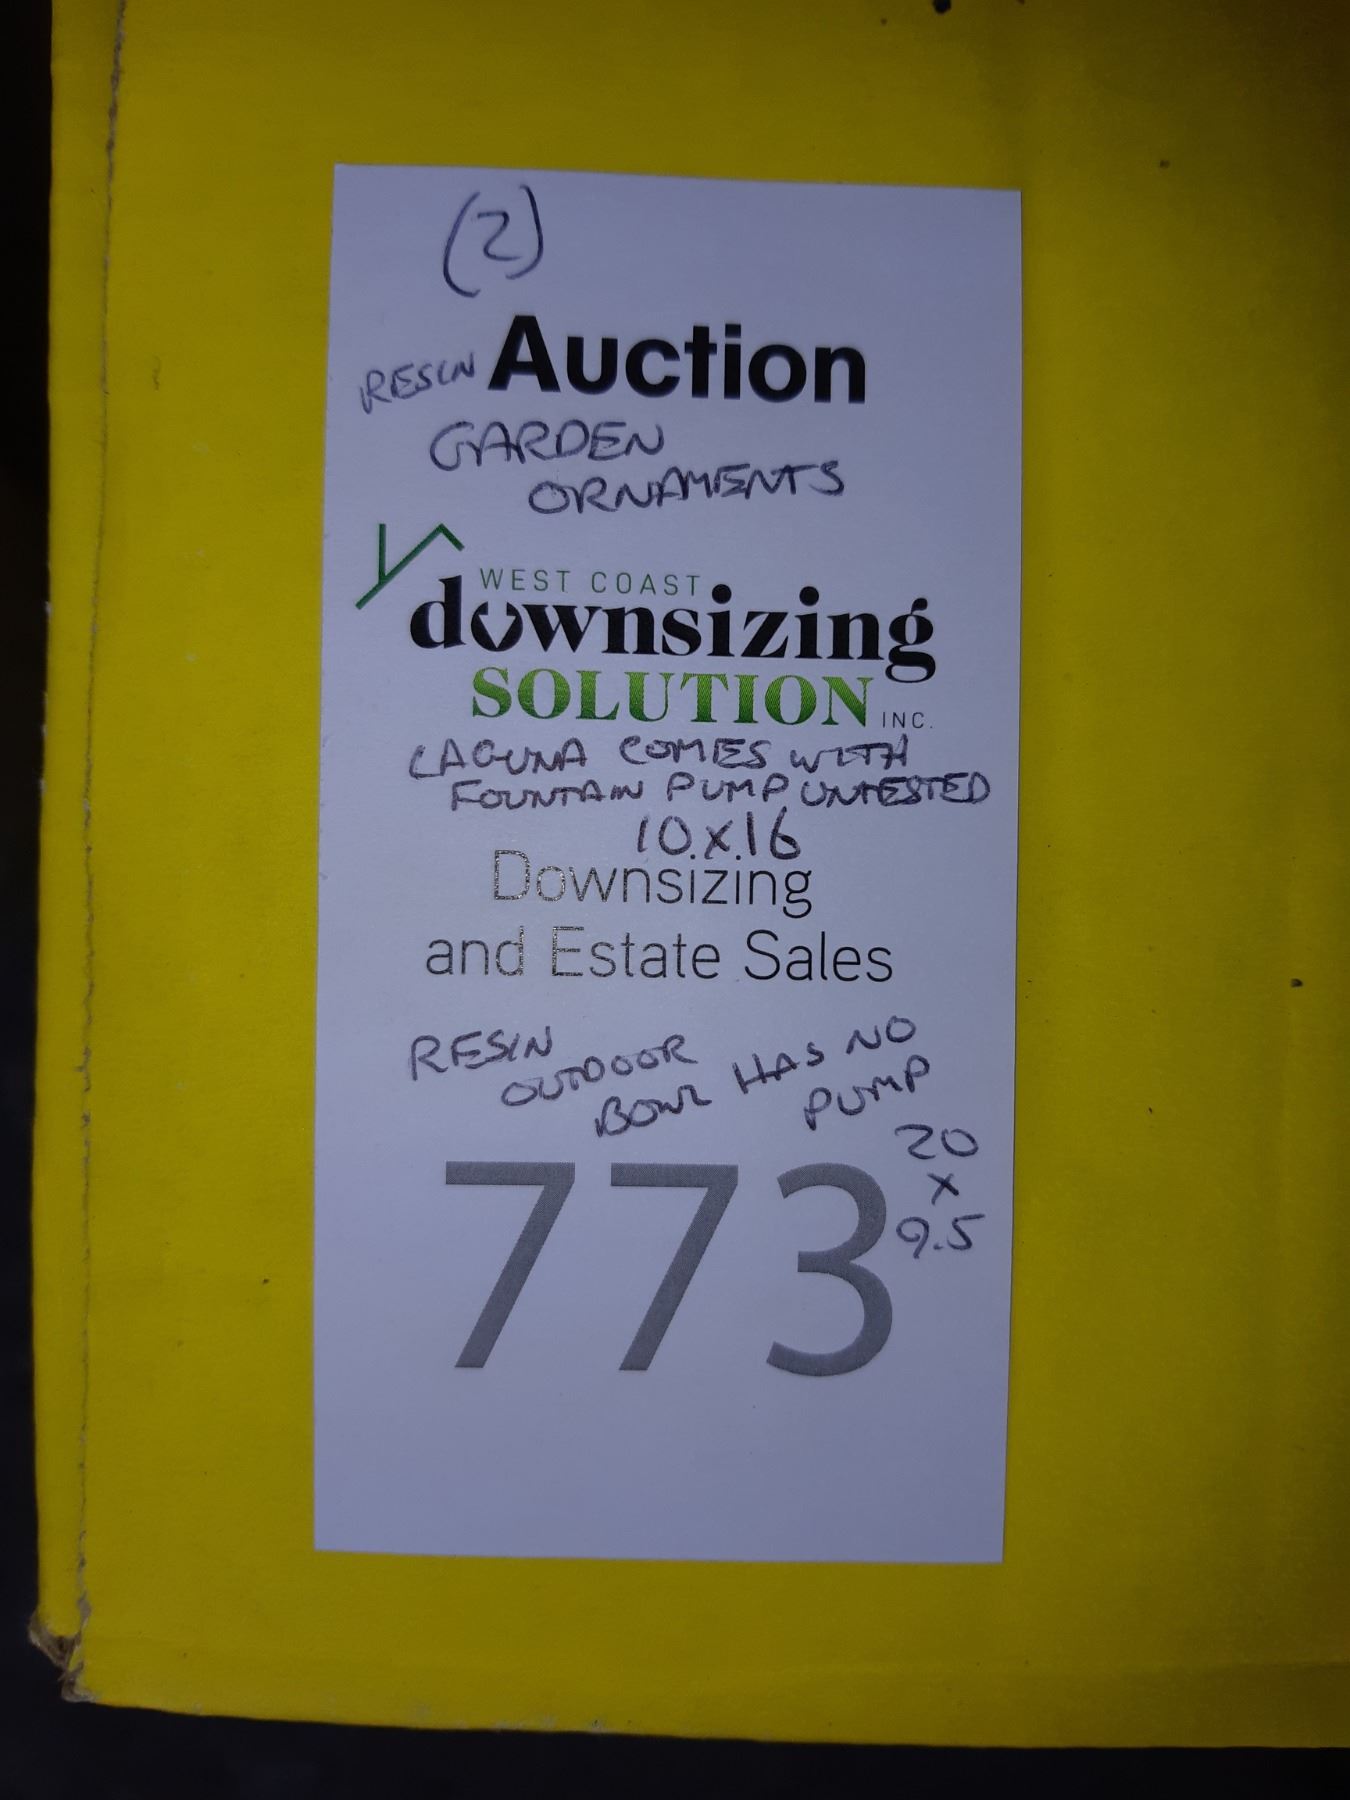 (2)
RESIN Auction
GARDEN
ORNAMENTS
WEST COAST
downsizing
SOLUTION INC.
LAGUNA COMES WITH
FOUNTAIN PUMP UNTESTED
10 x 16
Downsizing
and Estate Sales
RESIN
OUTDOOR
BOWL HAS NO
PUMP
20
x
9.5
773